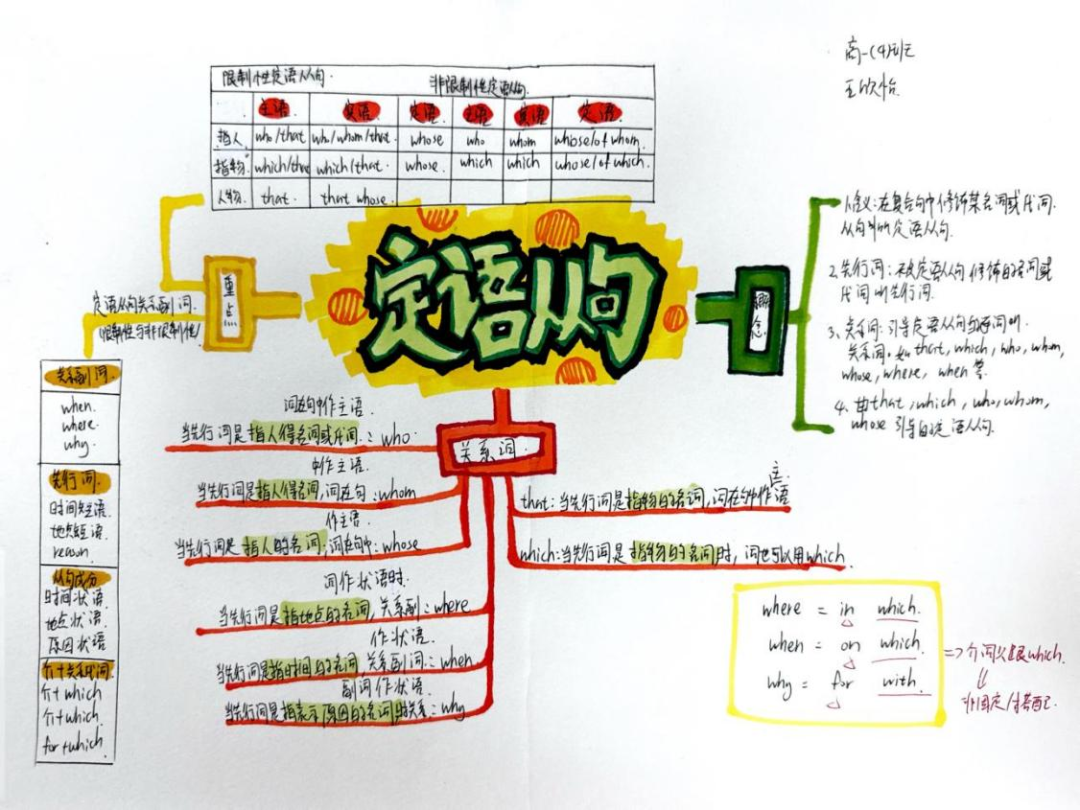 高一(4)班
王欣怡.
限制性定语从句. 非限制性定语从句.
主语 宾语 定语 主语 宾语 定语
指人 who/that who/whom/that. whose who whom whose/of whom.
指物 which/that which/that. whose. which which whose/of which.
人物. that. that whose.
定语从句
重点
定语从句关系副词.
限制性与非限制性
关系副词.
when.
where.
why.
先行词.
时间短语.
地点短语
reason
从句成分
时间状语
地点状语
原因状语
介+关系代词.
介+which
介+which.
for+which
概念
1.含义:在复合句中修饰某名词或代词.
从句叫定语从句.
2.先行词:被定语从句修饰的名词或
代词叫先行词.
3、关系词:引导定语从句的词叫.
关系词.如that,which,who,whom,
whose,where, when等.
4. 由that,which,who,whom,
whose引导的定语从句.
关系词.
词在句中作主语.
当先行词是指人得名词或代词.:who
中作主语.
当先行词是指人得名词,词在句:whom
作主语.
当先行词是指人的名词,词在句中:whose
词作状语时.
当先行词是指地点的名词,关系副:where
作状语.
当先行词是指时间的名词,关系副词:when
副词作状语.
当先行词是指表示原因的名词时关系:why
主.
that:当先行词是指物的名词,词在句中作语
which:当先行词是指物的名词时,词也可以用which.
where = in which.
when = on which.
why = for with.
=> 介词必跟which.
⇓
非固定/搭配